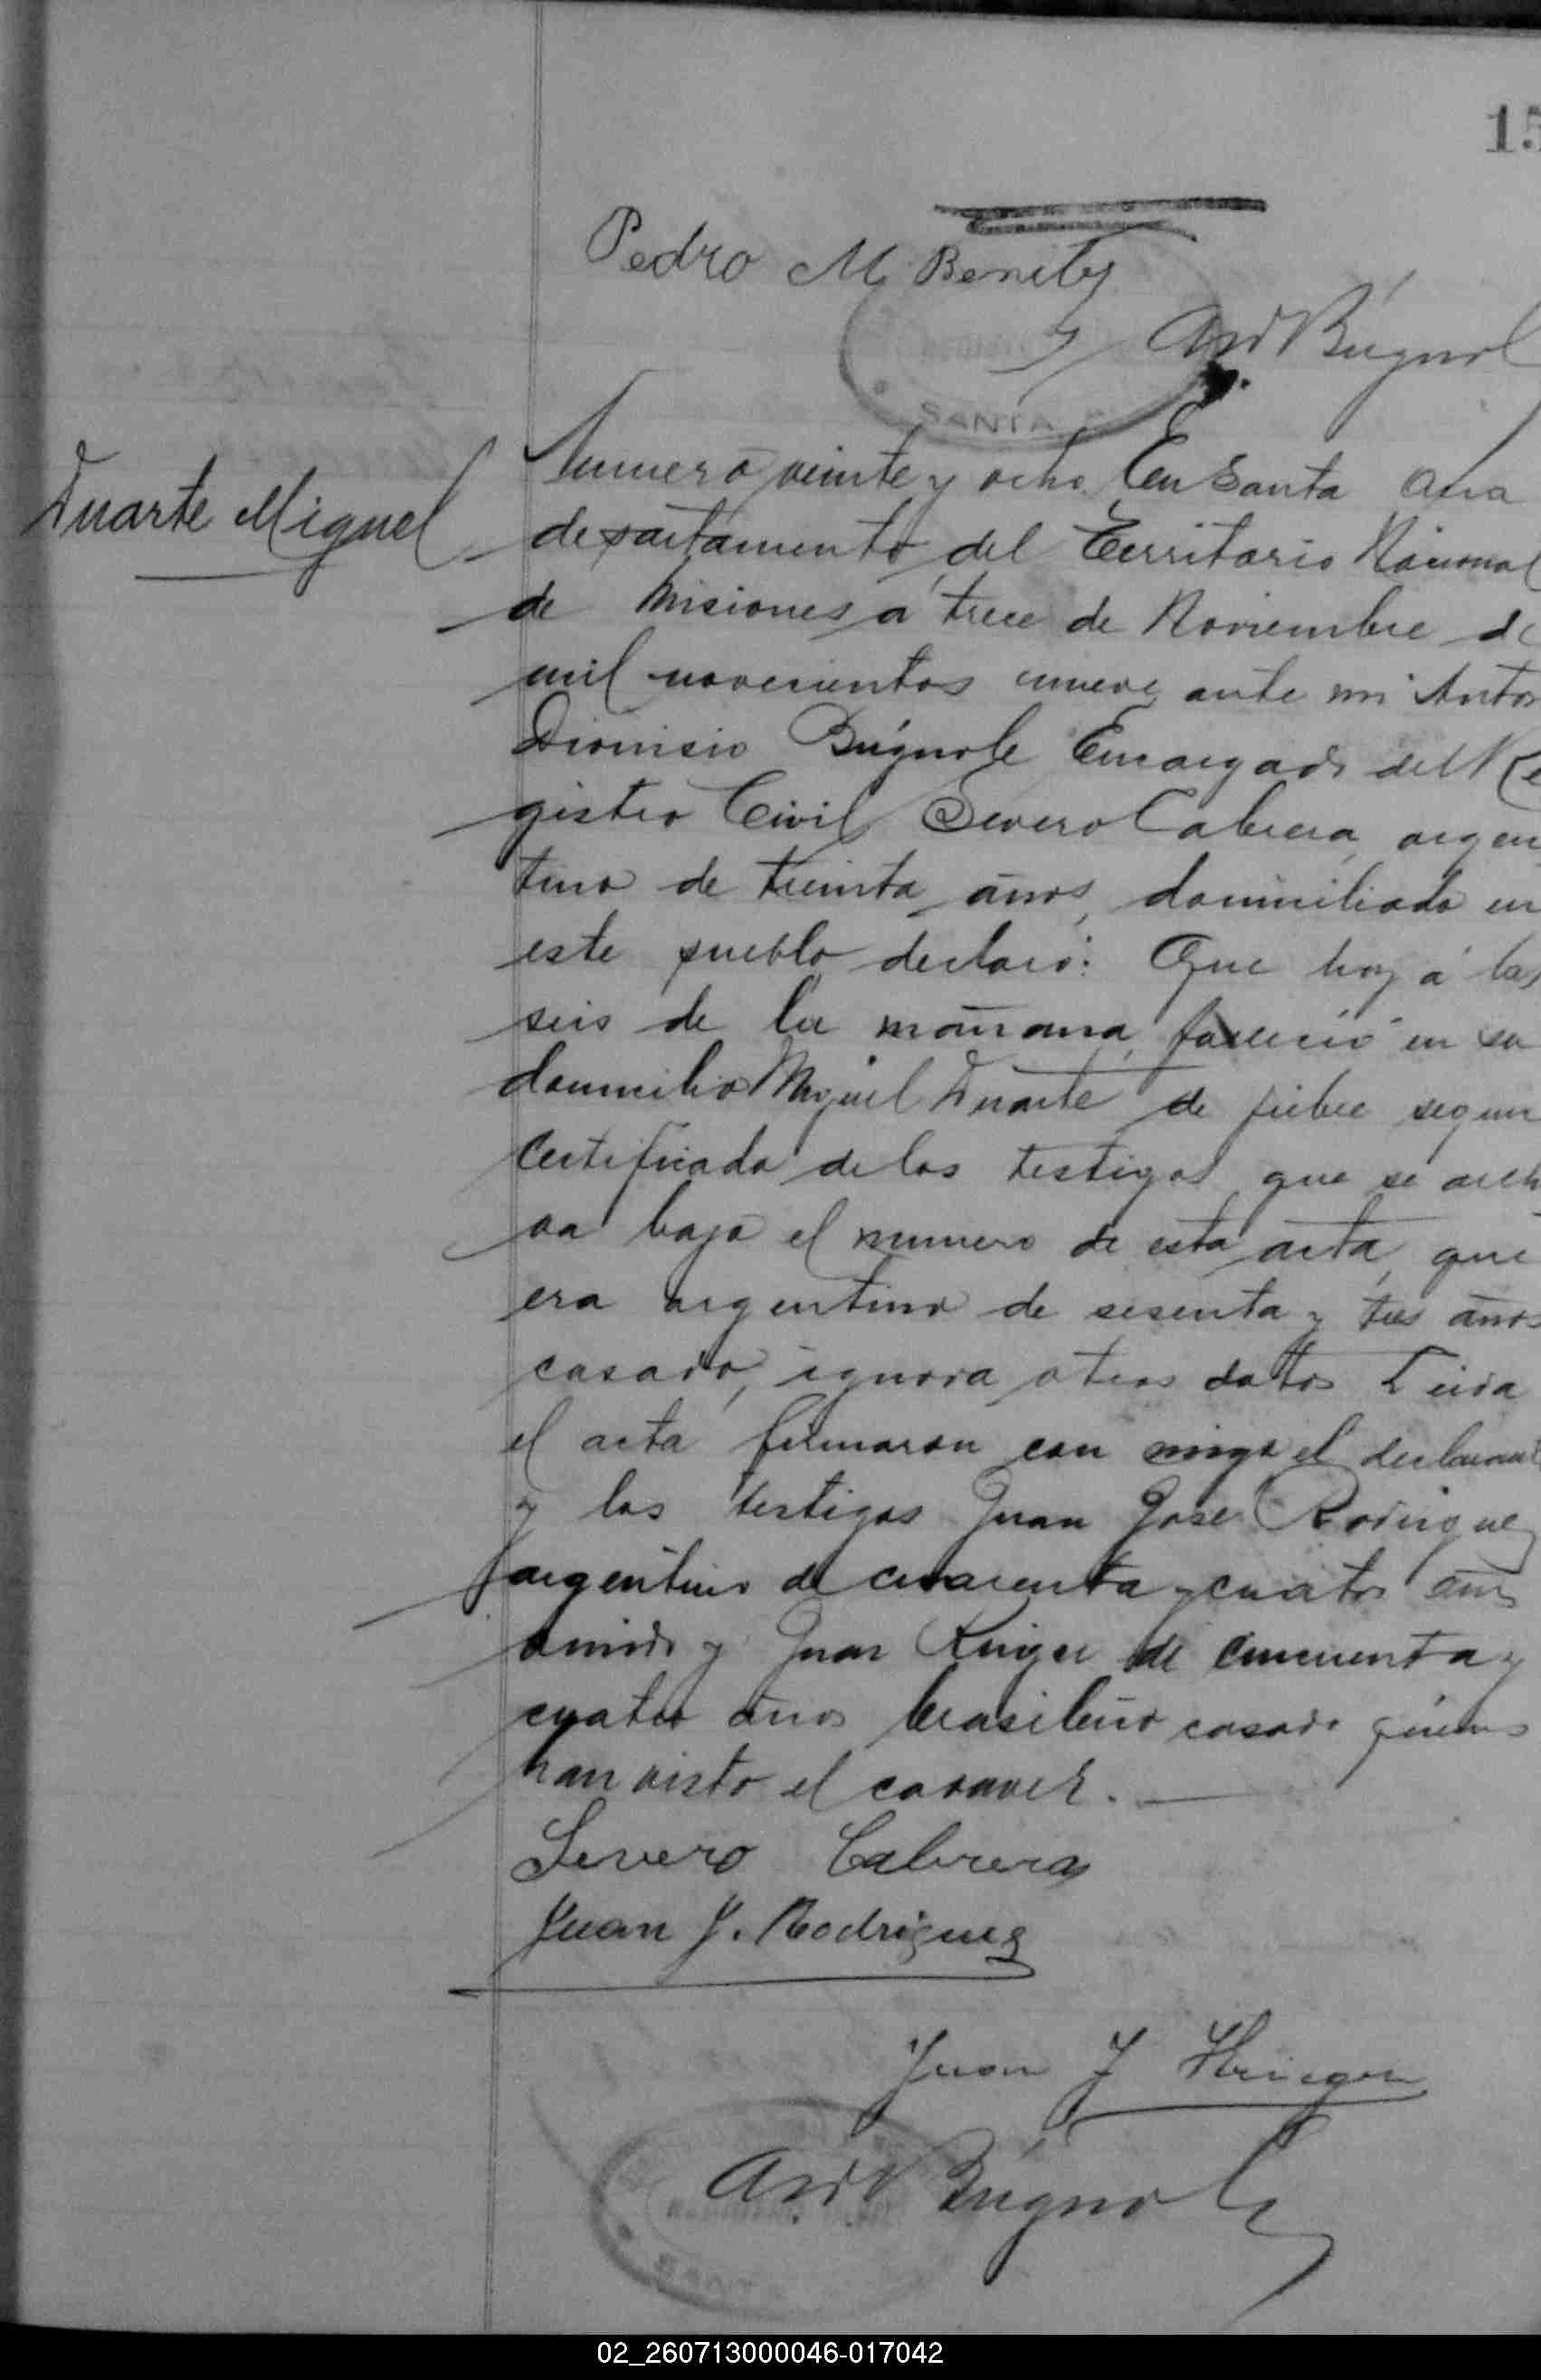 15
Pedro M. Benitez
Ant D Bugnol
SANTA
Duarte Miguel
Numero veinte y ocho En Santa Ana
departamento del Territorio Nacional
de Misiones a trece de Noviembre de
mil novecientos nueve ante mi Anton
Dionisio Bugnole Encargado del Re
gistro Civil Severo Cabrera argen
tino de treinta años, domiciliado en
este pueblo declaró: Que hoy á las
seis de la mañana, falleció en su
domicilio Miguel Duarte de fiebre segun
certificado de los testigos que se archi
va bajo el numero de esta acta, que
era argentino de sesenta y tres años
casado, ignora otros datos Leida
el acta firmaron con migo el declarant
y los testigos Juan José Rodriguez
argentino de cuarenta y cuatro años
y Juan Kriger de cincuenta y
cuatro años brasilero casado quienes
han visto el cadaver.
Severo Cabrera
Juan J. Rodriguez
Juan J Krieger
Ant D Bugnol
02_260713000046-017042